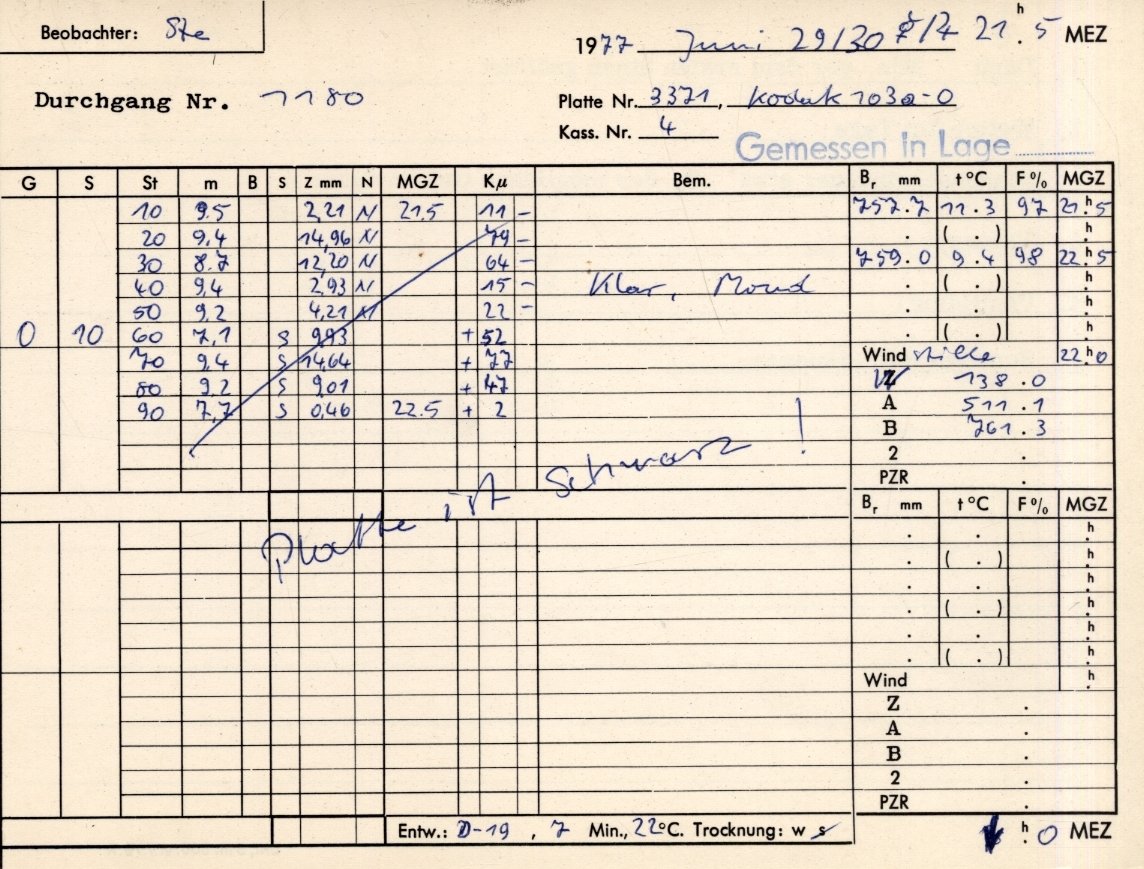 Beobachter: Ste
1977 Juni 29/30 21.h5 MEZ
Durchgang Nr. 1180
Platte Nr. 3371, Kodak 103a-O
Kass. Nr. 4
Gemessen in Lage
G S St m B S Z mm N MGZ Kμ Bem. Br mm t°C F% MGZ
10 9.5 2,21 N 21.5 11 – 757.7 11.3 97 21.h5
20 9,4 14,96 N 79 – . ( . ) h.
30 8.7 12,20 N 64 – 759.0 9.4 98 22.h5
40 9,4 2,93 N 15 – Klar, Mond . ( . ) h.
50 9,2 4,21 N 22 – . . h.
0 10 60 7,1 S 9,93 + 52 . ( . ) h.
70 9,4 S 14,64 + 77 Wind stille 22.h0
80 9,2 S 9,01 + 47 138.0
90 7,7 S 0,46 22.5 + 2 A 511.1
B 761.3
2 .
PZR .
Platte ist schwarz!
Br mm t°C F% MGZ
. . h.
. ( . ) h.
. . h.
. ( . ) h.
. . h.
. ( . ) h.
Wind h.
Z .
A .
B .
2 .
PZR .
Entw.: D-19, 7 Min., 22°C. Trocknung: w s
h. 0 MEZ